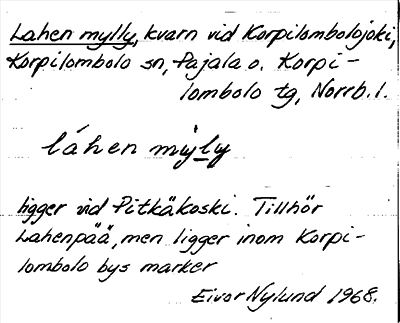 Lahen mylly, kvarn vid Korpilombolojoki,
Korpilombolo sn, Pajala o. Korpi-
lombolo tg, Norrb. l.
láhen mỳly
ligger vid Pitkäkoski. Tillhör
Lahenpää, men ligger inom Korpi-
lombolo bys marker
Eivor Nylund 1968.